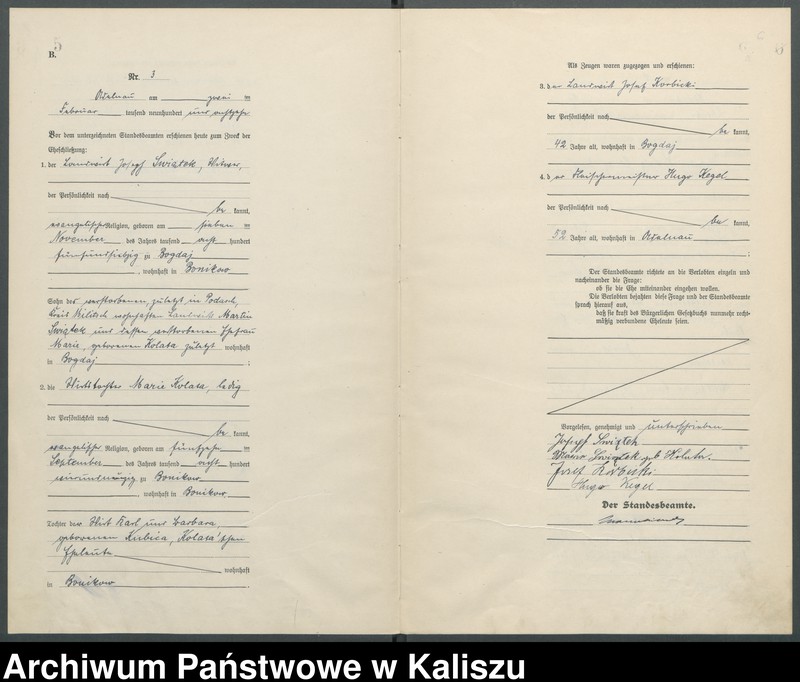 B.
Nr. 3
Adelnau am zwei ten
Februar tausend neunhundert und achtzehn
Vor dem unterzeichneten Standesbeamten erschienen heute zum Zweck der
Eheschließung:
1. der Landwirt Joseph Świątek, Witwer,
der Persönlichkeit nach
be kannt,
evangelischer Religion, geboren am sieben ten
November des Jahres tausend acht hundert
fünfundsiebzig zu Bogdaj
, wohnhaft in Bonikow
Sohn des verstorbenen, zuletzt in
Kreis Militsch wohnhaften Landwirts Martin
Świątek und dessen verstorbenen Ehefrau
Marie, geborenen Kolata zuletzt wohnhaft
in Bogdaj ;
2. die Wirtstochter Marie Kolata, ledig
der Persönlichkeit nach
be kannt,
evangelischer Religion, geboren am fünfzehn ten
September des Jahres tausend acht hundert
neunundneunzig zu Bonikow
, wohnhaft in Bonikow
Tochter der Wirt Karl und Barbara
geborenen Kubica, Kolata'schen
Eheleute
wohnhaft
in Bonikow
Als Zeugen waren zugezogen und erschienen:
3. der Landwirt Josef Korbicki
der Persönlichkeit nach
be kannt,
42 Jahre alt, wohnhaft in Bogdaj
4. der Fleischermeister Hugo Kegel
der Persönlichkeit nach
be kannt,
52 Jahre alt, wohnhaft in Adelnau
;
Der Standesbeamte richtete an die Verlobten einzeln und
nacheinander die Frage:
ob sie die Ehe miteinander eingehen wollen.
Die Verlobten bejahten diese Frage und der Standesbeamte
sprach hierauf aus,
daß sie kraft des Bürgerlichen Gesetzbuchs nunmehr recht-
mäßig verbundene Eheleute seien.
Vorgelesen, genehmigt und unterschrieben
Joseph Swiątek
Marie Swiątek geb Kolata.
Josef Korbicki
Hugo Kegel
Der Standesbeamte.
Archiwum Państwowe w Kaliszu